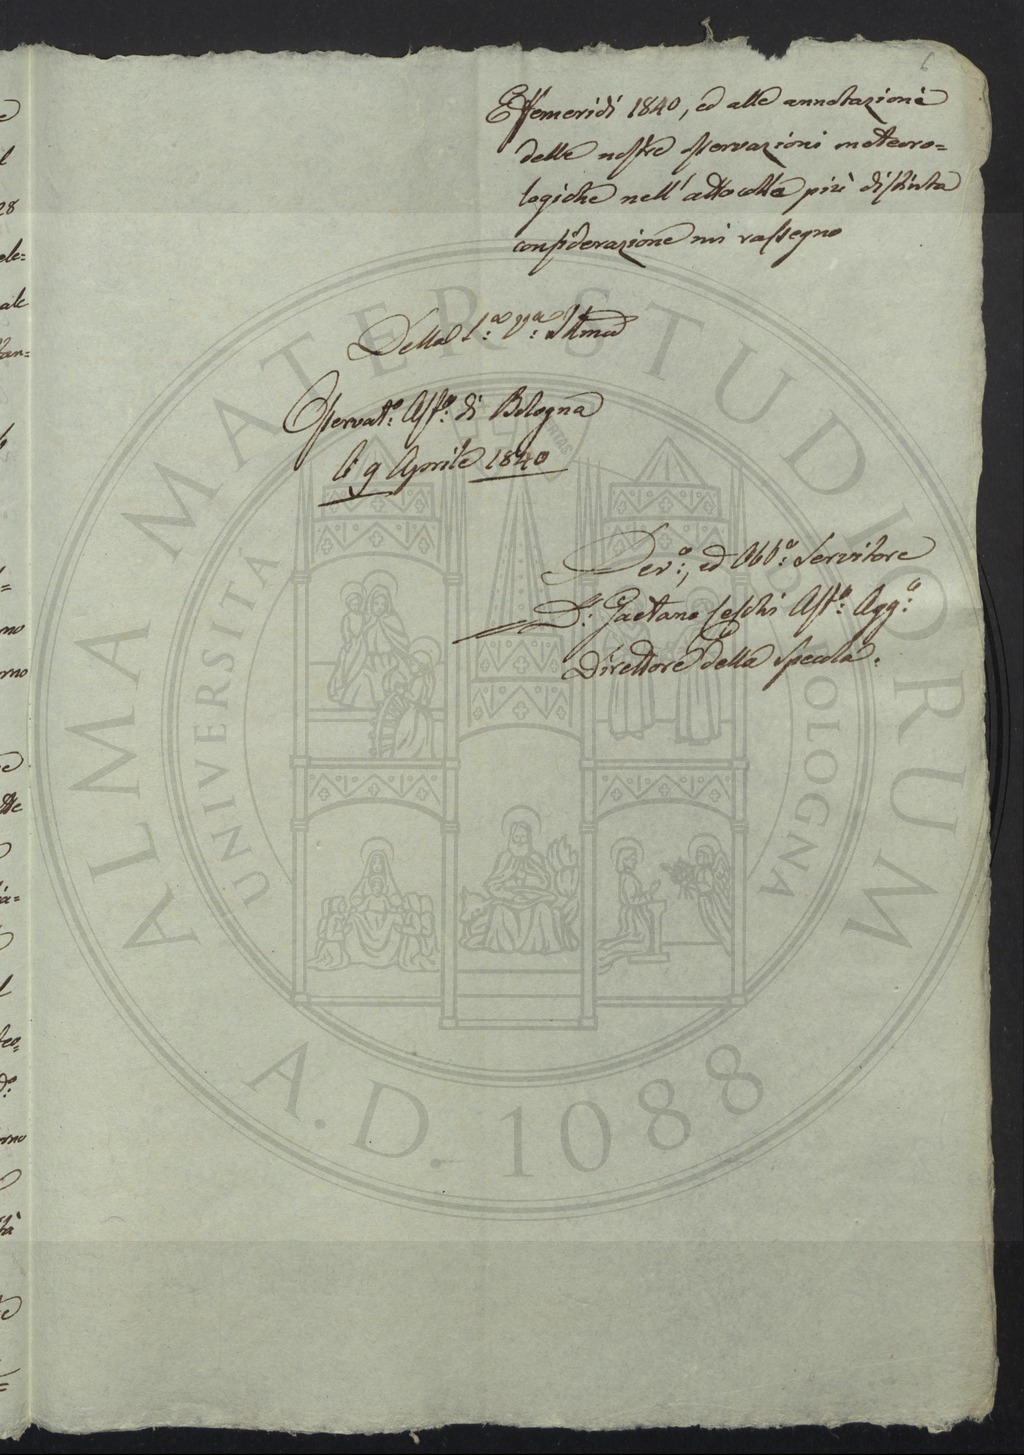 6
Effemeridi 1840, ed alle annotazioni
delle nostre osservazioni meteoro=
logiche nell' atto colla più distinta
considerazione mi rassegno
Della S.a V.a Illma
Osservat.o Ast.o di Bologna
li 9 Aprile 1840
Dev.o, ed Obb.o Servitore
D.r Gaetano Ceschi Ast.o Agg.o
Direttore della Specola.
ALMA MATER STUDIORUM
UNIVERSITÀ DI BOLOGNA
A.D. 1088
28
ele=
ale
tan=
mo
rno
tte
ia=
teo=
rno
tà